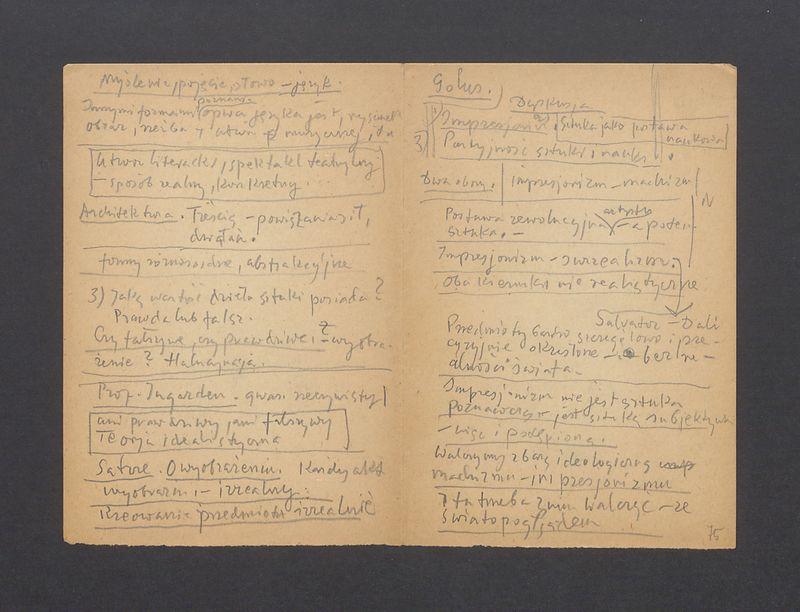 Myślenie, pojęcie, słowo – język.
Innymi formami
poznania
języka jest, rysunek
obraz, rzeźba, utwór muzyczny,
Utwór literacki, spektakl teatralny
– sposób realny, konkretny.
Architektura. Treścią – powiązania sił,
działań.
formy różnorodne, abstrakcyjne
3) Jaką wartość dzieło sztuki posiada?
Prawda lub fałsz.
Czy fałszywe, czy prawdziwe – wyobra-
żenie? Halucynacja.
Prof. Ingarden. quasi rzeczywisty
ani prawdziwy, ani fałszywy
Teoria idealistyczna
Sartre. O wyobrażeniu. Każdy akt
wyobraźni – irrealny.
Kreowanie przedmiotu irrealnie
Golus.
Dyskusja
3)
Impresjonizm, sztuka jako postawa
naukowa
Partyjność sztuki i nauki.
Dwa obozy. impresjonizm – machizm
Postawa rewolucyjna
artysty
– a potem
sztuka. –
Impresjonizm – surrealizm.
Oba kierunki nie realistyczne
Salvator – Dali
Przedmioty bardzo szczegółowo i pre-
cyzyjnie określone – bez re-
alności świata.
Impresjonizm nie jest sztuką
poznawczą jest sztuką subjektywną
– więc i potępioną.
Walczymy z bazą ideologiczną
machizmu – impresjonizmu
i ta trzeba z nim walczyć – ze
światopoglądem
75